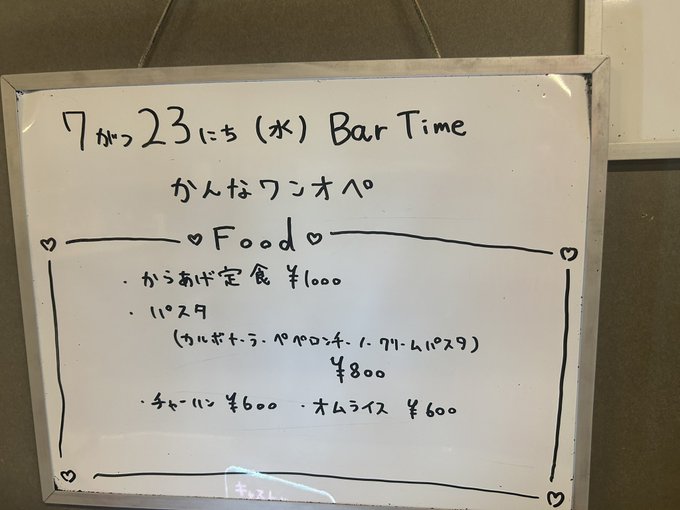 7がつ23にち (水) Bar Time
かんなワンオペ
♡ Food ♡
・からあげ定食 ¥1000
・パスタ
(カルボナーラ・ペペロンチーノ・クリームパスタ)
¥800
・チャーハン ¥600 ・オムライス ¥600